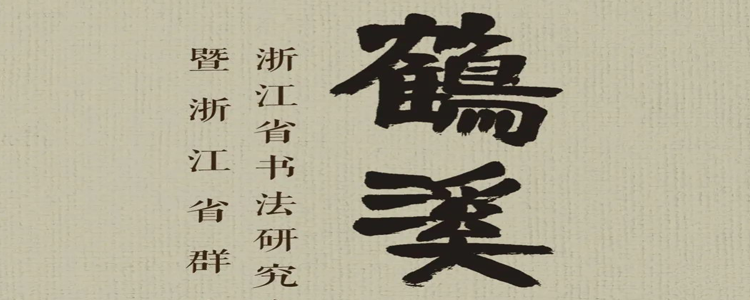 鹤溪
浙江省书法研究
暨浙江省群